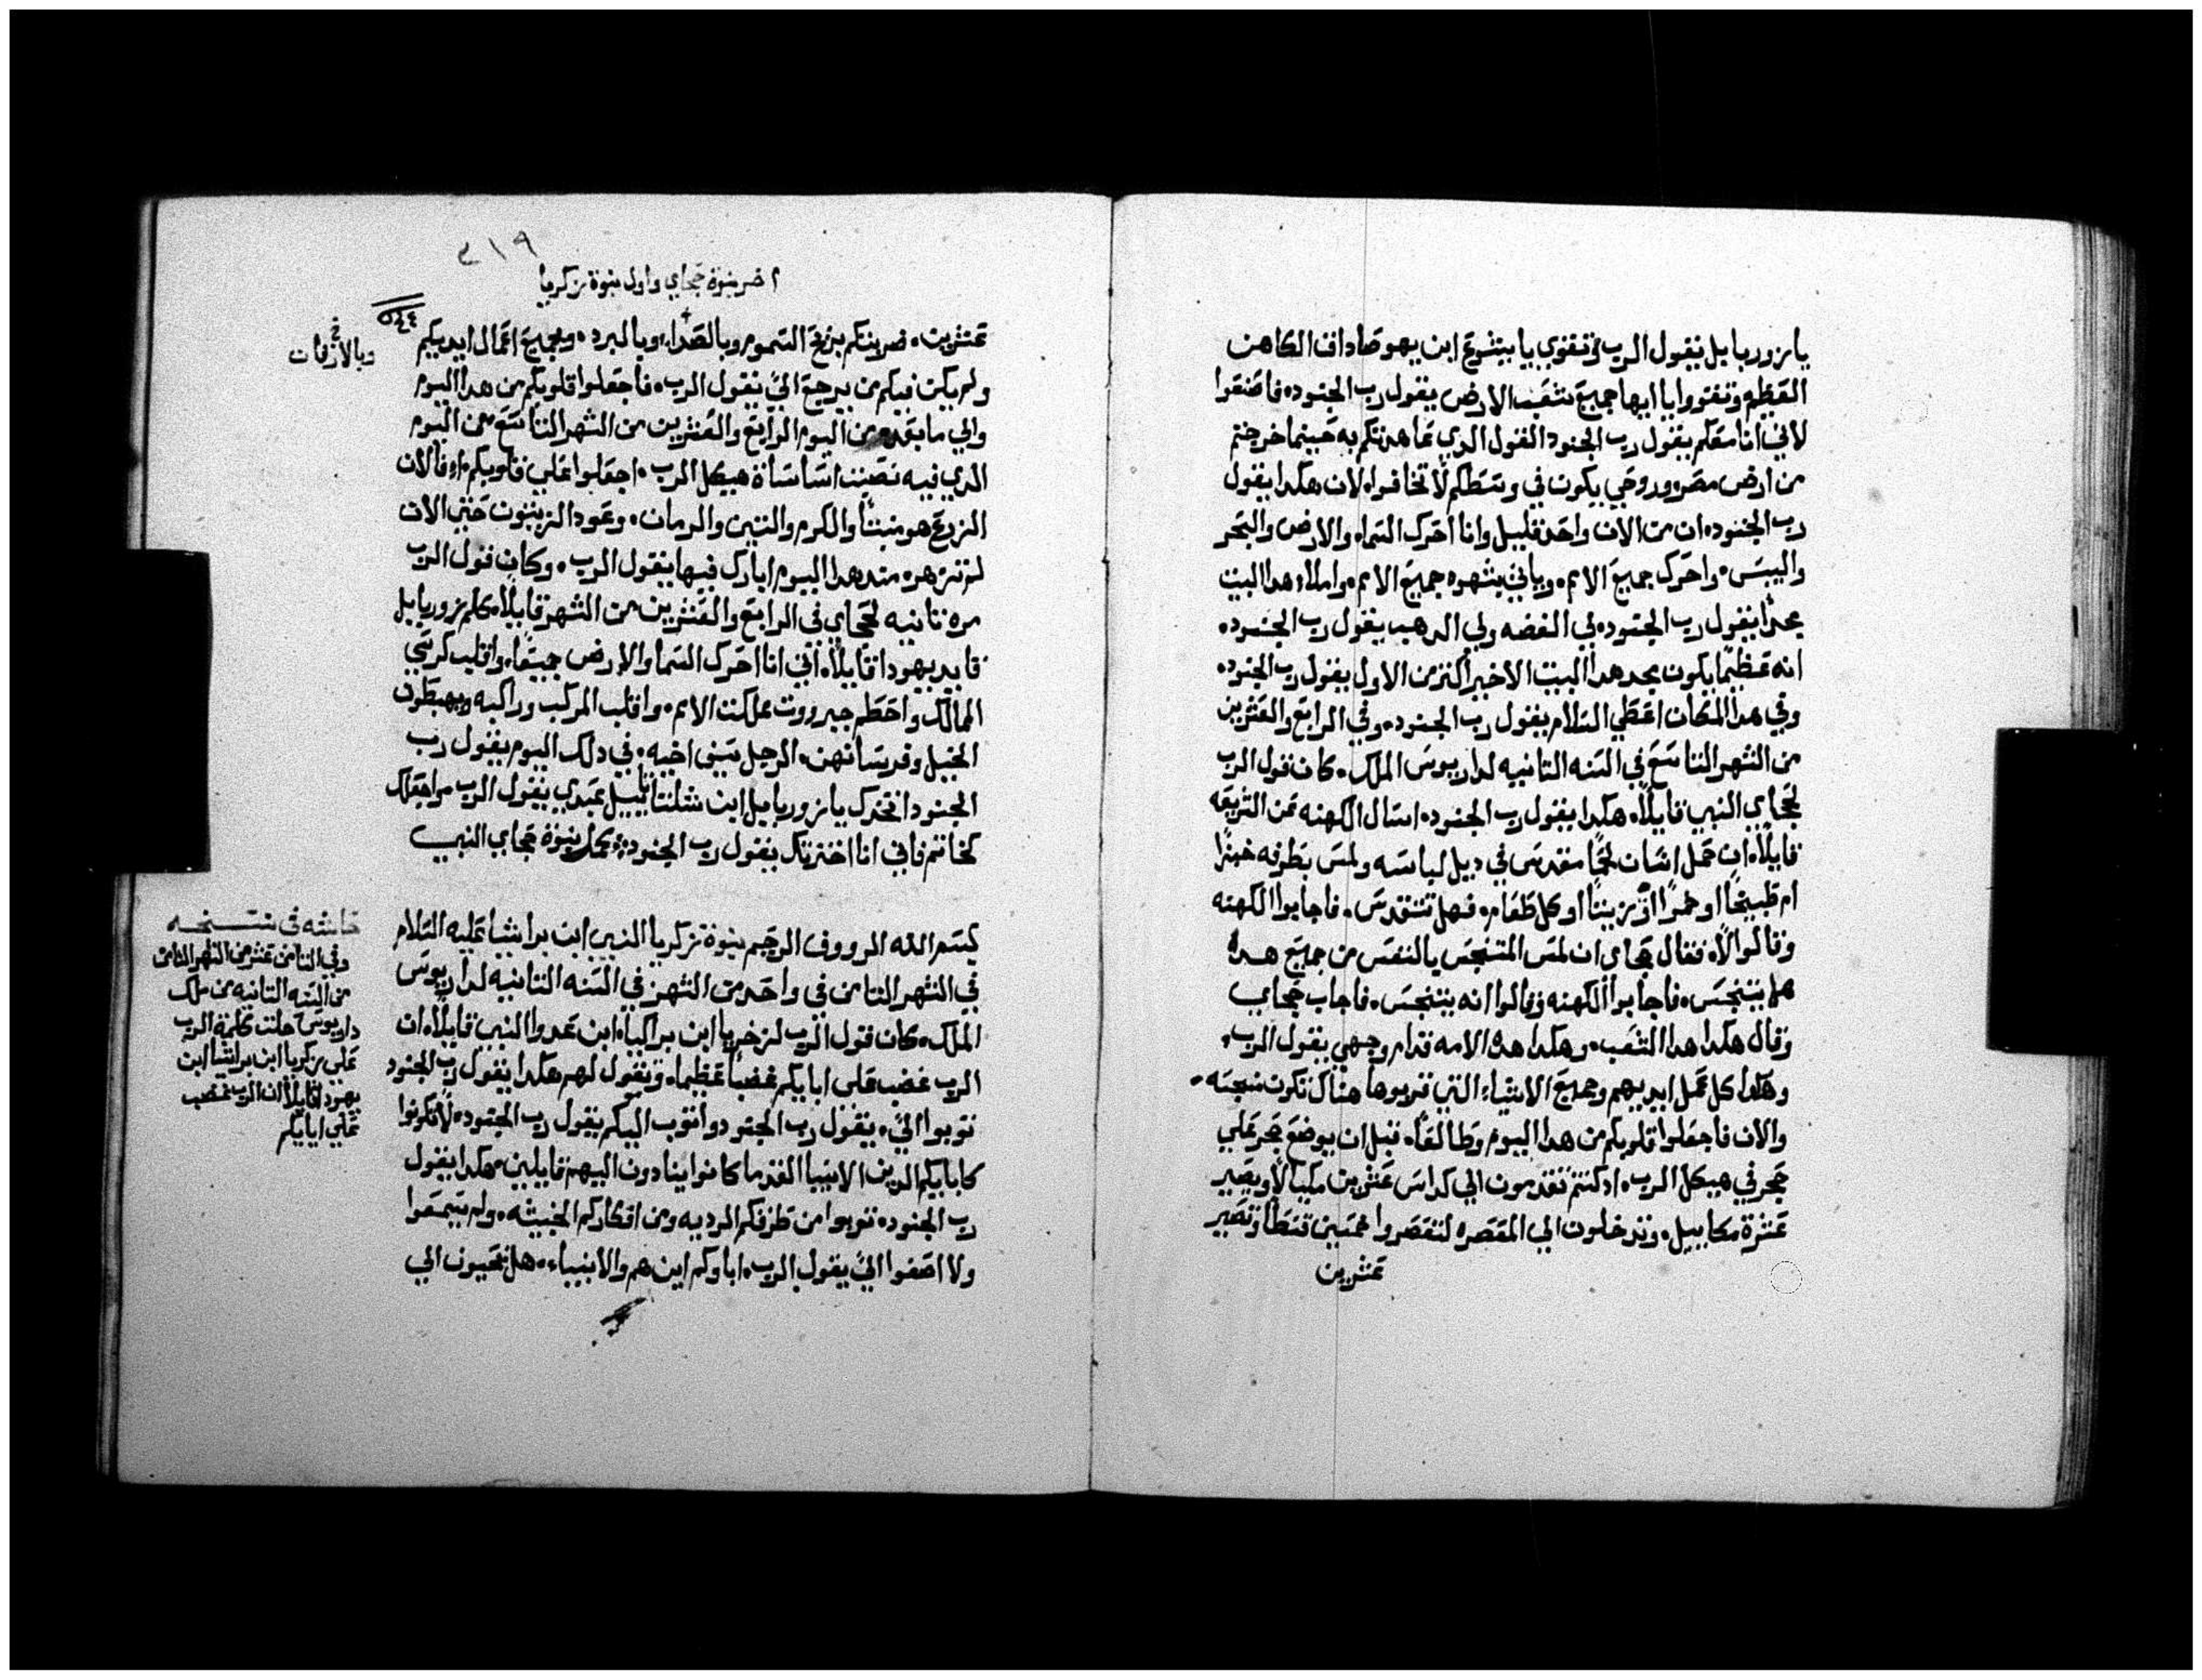 يا زوربابل يقول الرب فتقوي يا يشوع ابن يهوصاداق الكاهن
العظيم وتقووا يا ايها جميع شعب الارض يقول رب الجنود، فاصنعوا
لاني انا معكم يقول رب الجنود القول الدي عاهدتكم به حينما خرجتم
من ارض مصر، وروحي يكون في وسطكم لا تخافوا، لان هكدا يقول
رب الجنود، ان من الان واحد قليل وانا احرك السماء والارض والبحر
واليبس، واحرك جميع الامم، وياتي بشهوه جميع الامم، واملاء هدا البيت
مجدًا يقول رب الجنود، لي الفضه ولي الدهب يقول رب الجنود،
انه عظيمًا يكون مجد هدا البيت الاخير اكثر من الاول يقول رب الجنود،
وفي هدا المكان اعطي السلام يقول رب الجنود، وفي الرابع والعشرين
من الشهر التاسع في السنه التانيه لداريوس الملك، كان قول الرب
لحجاي النبي قايلًا، هكدا يقول رب الجنود، اسال الكهنه عن الشريعه
قايلًا، ان حمل انسان لحمًا مقدس في ديل لباسه ولمس بطرفه خبزًا
ام طبيخًا او خمرًا او زيتًا او كل طعام، فهل تتقدس، فاجابوا الكهنه
وقالوا لا، فقال حجاي ان لمس المتنجس بالنفس من جميع هده
هل يتنجس، فاجابوا الكهنه وقالوا انه يتنجس، فاجاب حجاي
وقال هكدا هدا الشعب، وهكدا هده الامه قدام وجهي يقول الرب،
وهكدا كل عمل ايديهم وجميع الاشياء التي قربوها هناك تكون نجسه،
والان فاجعلوا قلوبكم من هدا اليوم وطالعًا، قبل ان يوضع حجر علي
حجر في هيكل الرب، اد كنتم تقدمون الي كداس عشرين مكيالًا ويصير
عشرة مكاييل، وتدخلون الي المعصره لتعصروا خمسين قسطًا وتصير
عشرين
٢١٩
اخر نبوة حجاي واول نبوة زكريا
عشرين، ضربتكم بزرع السموم وبالصداء، وبالبرد، وبجميع اعمال ايديكم
وبالارقان
ولم يكن فيكم من يرجع اليَّ يقول الرب، فاجعلوا قلوبكم من هدا اليوم
والي ما بعده من اليوم الرابع والعشرين من الشهر التاسع من اليوم
الدي فيه نصبت اساساة هيكل الرب، اجعلوا علي قلوبكم، ان الان
الزرع هو منبتًا والكرم والتين والرمان، وعود الزيتون حتي الان
لم تزهر، مند هدا اليوم ابارك فيها يقول الرب، وكان قول الرب
مره تانيه لحجاي في الرابع والعشرين من الشهر قايلًا، كلم زوربابل
قايد يهودا قايلًا، اني انا احرك السما والارض جميعًا، واقلب كرسي
الممالك واحطم جبروت مملكت الامم، واقلب المركب وراكبه ويهبطون
الخيل وفرسانهن، الرجل بسيف اخيه، في دلك اليوم يقول رب
الجنود اتخدك يا زوربابل ابن شلتاييل عبدي يقول الرب، واجعلك
كخاتم فاني انا اخترتك يقول رب الجنود، كمل نبوة حجاي النبي
بسم الله الرووف الرحيم نبوة زكريا النبي ابن براشيا عليه السلام
في الشهر التامن في واحد من الشهر في السنه التانيه لداريوس
الملك، كان قول الرب لزخريا ابن براكيا، ابن عدوا النبي قايلًا، ان
الرب غضب على ابايكم غضبًا عظيمًا، وتقول لهم هكدا يقول رب الجنود
توبوا اليَّ، يقول رب الجنود واتوب اليكم يقول رب الجنود، لا تكونوا
كابايكم الدين الانبيا القدما كانوا ينادون اليهم قايلين، هكدا يقول
رب الجنود، توبوا من طرقكم الرديه ومن افكاركم الخبيثه، ولم يسمعوا
ولا اصغوا اليَّ يقول الرب، اباوكم اين هم والانبياء، هل يحيون الي
حاشيه في نسخه
وفي التامن عشر من الشهر التامن
من السنه التانيه من ملك
داريوس حلت كلمة الرب
على زكريا ابن براشيا ابن
يهودا قايلًا ان الرب غضب
علي ابايكم